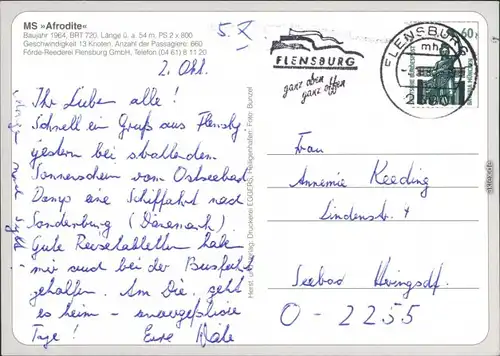 MS »Afrodite«
Baujahr 1964, BRT 720, Länge ü. a. 54 m, PS 2 x 800
Geschwindigkeit 13 Knoten, Anzahl der Passagiere: 660
Förde-Reederei Flensburg GmbH, Telefon (04 61) 8 11 20
5. X
2. Okt.
Ihr Lieben alle!
Schnell ein Gruß aus Flensbg
gestern bei strahlendem
Sonnenschein vom Ostseebad
Damp eine Schiffahrt nach
Sonderburg (Dänemark)
Gute Reisetabletten haben
mir auch bei der Busfahrt
geholfen. Am Die. geht
es heim - unvergeßliche
Tage! Eure
FLENSBURG
ganz oben
ganz offen
FLENSBURG
mh
60
Frau
Annemie Keeding
Lindenstr. 4
Seebad Heringsdf.
O - 2255